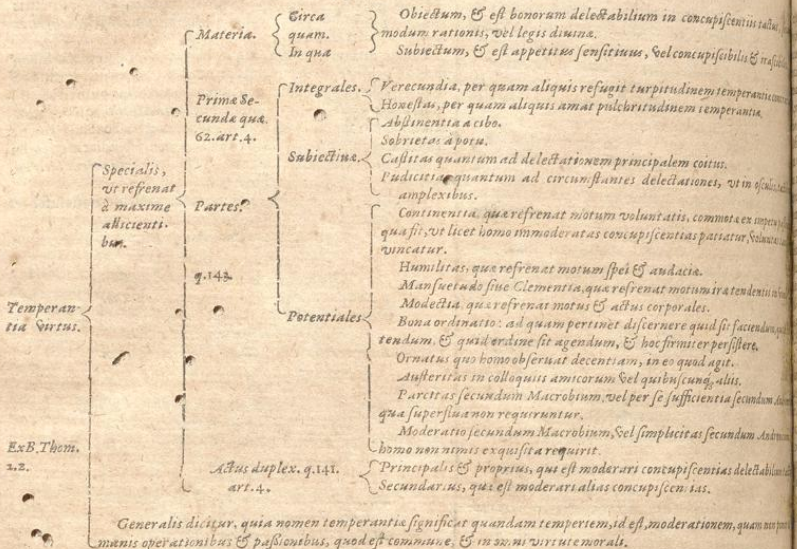 Circa
quam.
In qua
Materia.
Obiectum, & est bonorum delectabilium in concupiscentiis tactus,
modum rationis, vel legis diuinæ.
Subiectum, & est appetitus sensitiuus, vel concupiscibilis &
Primæ Se-
cundæ quæ.
62. art. 4.
Integrales.
Verecundia, per quam aliquis refugit turpitudinem temperantiæ
Honestas, per quam aliquis amat pulchritudinem temperantiæ.
Subiectiuæ.
Abstinentia a cibo.
Sobrietas à potu.
Castitas quantum ad delectationem principalem coitus.
Pudicitia quantum ad circunstantes delectationes, vt in osculis,
amplexibus.
Specialis,
vt refrenat
à maxime
allicienti-
bus.
Partes.
q.143.
Potentiales
Continentia, quæ refrenat motum voluntatis, commotæ ex impetu
qua fit, vt licet homo immoderatas concupiscentias patiatur,
vincatur.
Humilitas, quæ refrenat motum spei & audaciæ.
Mansuetudo siue Clementia, quæ refrenat motum iræ tendentis
Modestia quæ refrenat motus & actus corporales.
Bona ordinatio: ad quam pertinet discernere quid sit faciendum,
tendum, & quid ordine sit agendum, & hoc firmiter persistere.
Ornatus quo homo obseruat decentiam, in eo quod agit.
Austeritas in colloquiis amicorum vel quibuscunq; aliis.
Parcitas secundum Macrobium, vel per se sufficientia secundum
qua superflua non requiruntur.
Moderatio secundum Macrobium, vel simplicitas secundum
homo non nimis exquisita requirit.
Temperan-
tia Virtus.
Ex B. Thom.
2.2.
Actus duplex. q.141.
art. 4.
Principalis & proprius, qui est moderari concupiscentias
Secundarius, qui est moderari alias concupiscentias.
Generalis dicitur, quia nomen temperantiæ significat quandam temperiem, id est, moderationem, quam
manis operationibus & passionibus, quod est commune, & in omni virtute morali.